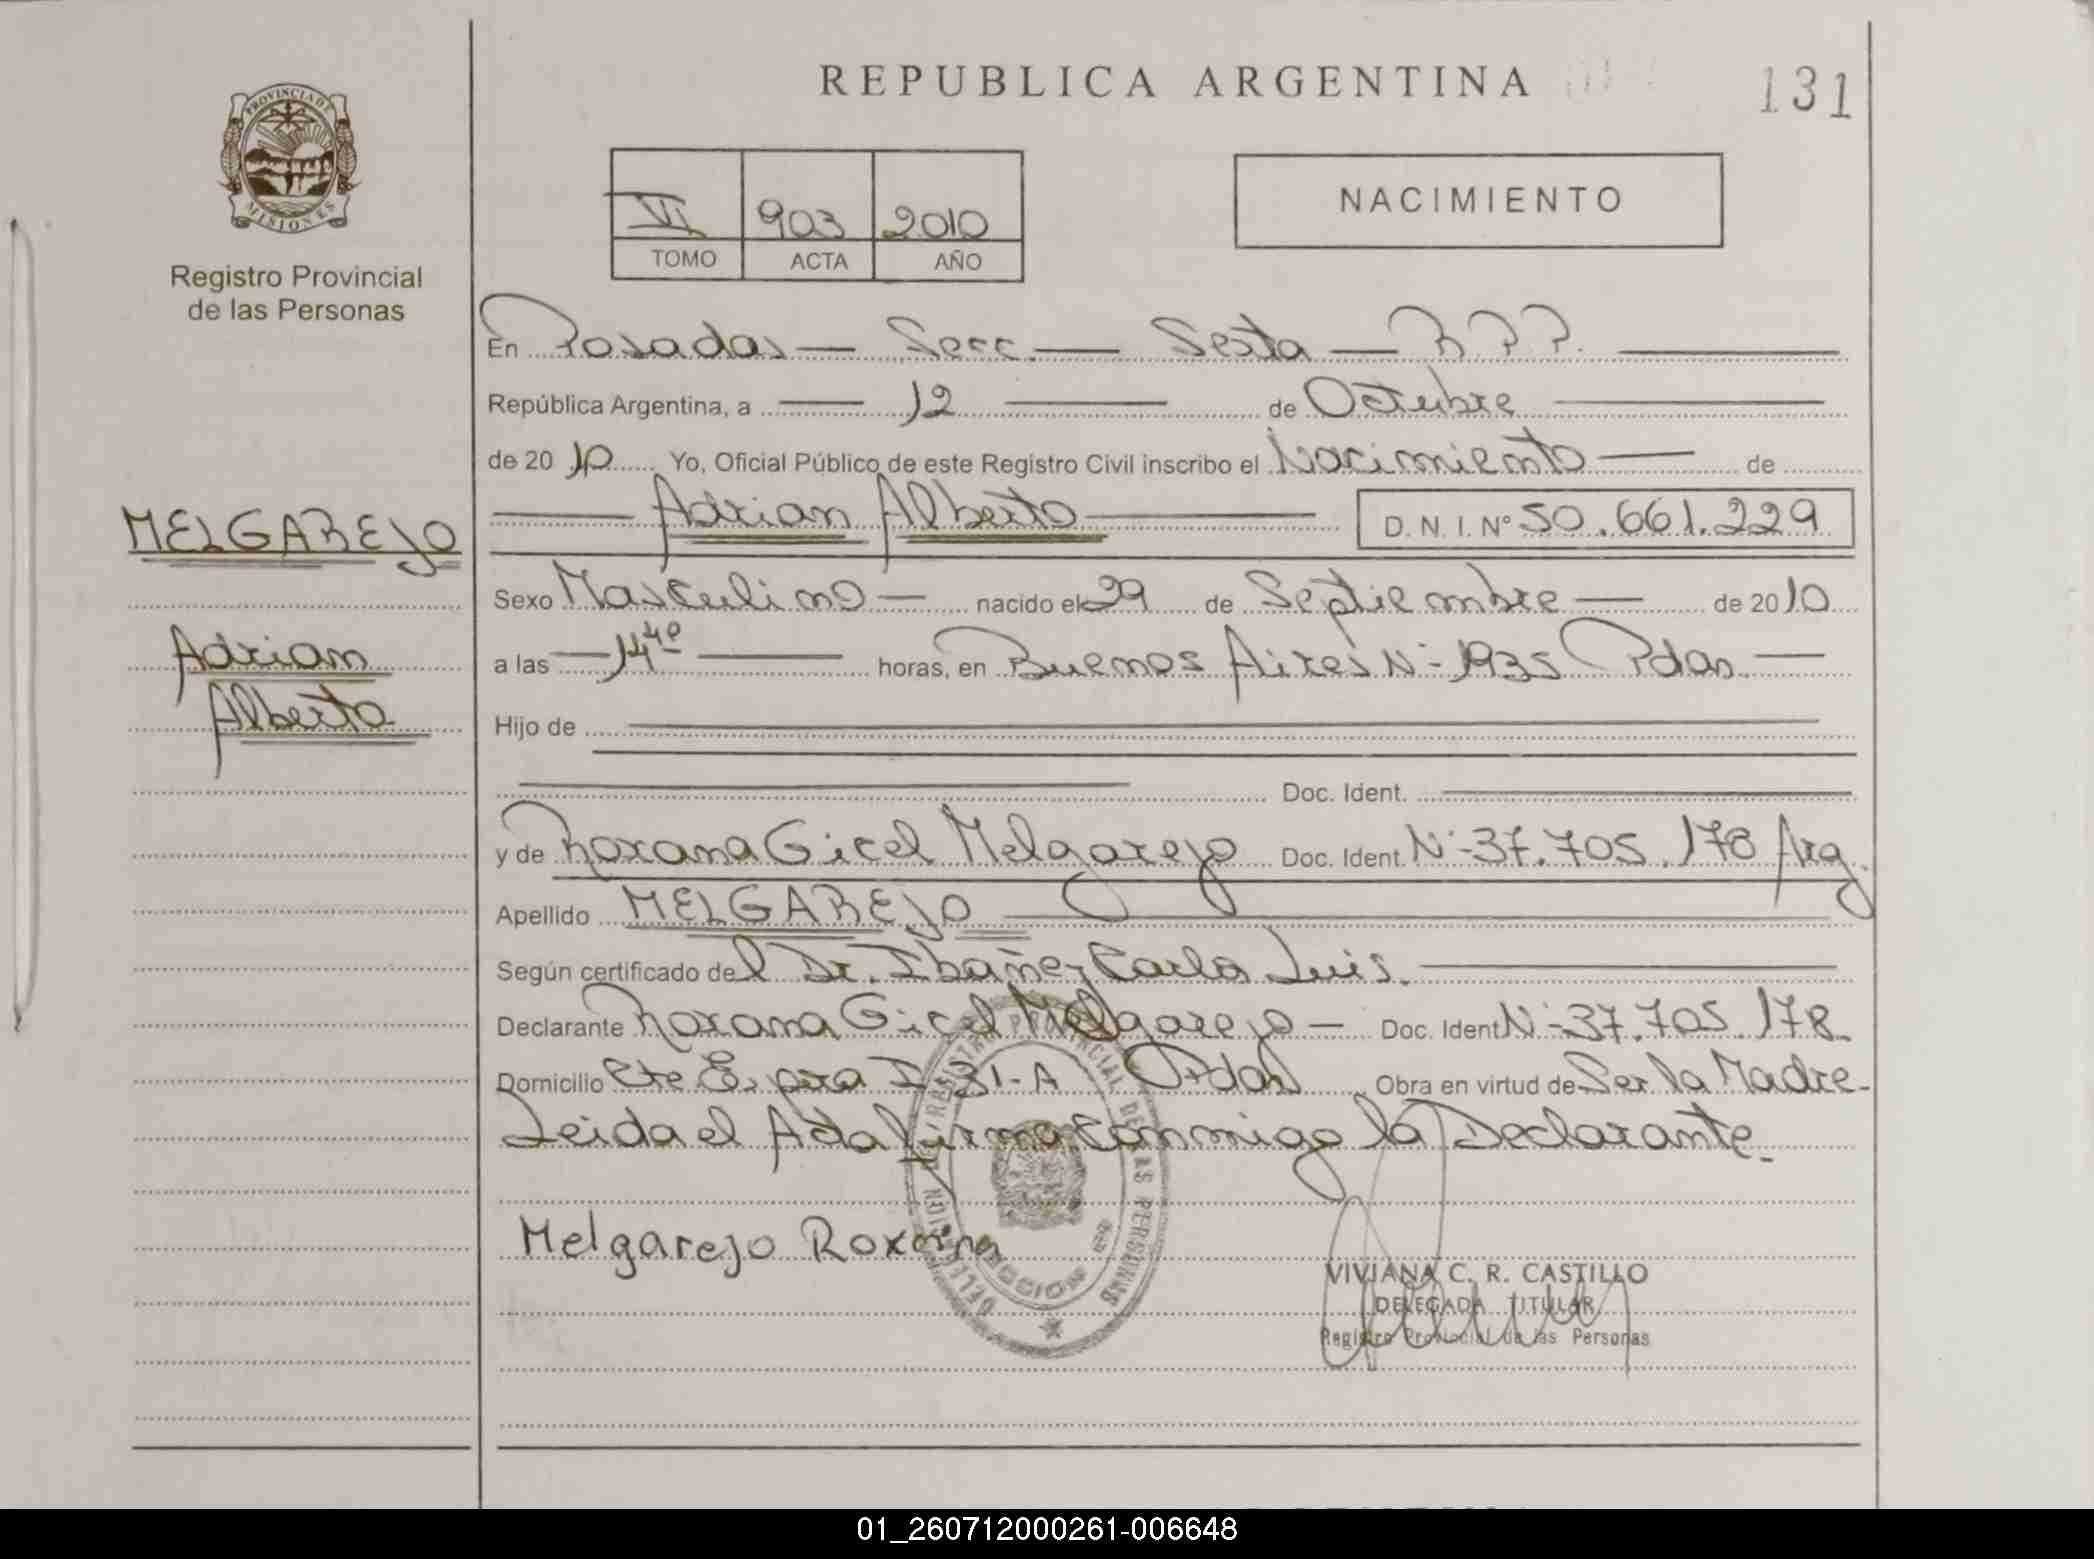 REPUBLICA ARGENTINA
131
PROVINCIA DE
MISIONES
Registro Provincial
de las Personas
VI 903 2010
TOMO ACTA AÑO
NACIMIENTO
En Posadas — Secc. — Sexta — R.P.P.
República Argentina, a — 12 — de Octubre
de 2010 Yo, Oficial Público de este Registro Civil inscribo el Nacimiento — de
Adrian Alberto D. N. I. N° 50.661.229
MELGAREJO
Adrian
Alberto
Sexo Masculino — nacido el 29 de Septiembre — de 2010
a las — 14 40 — horas, en Buenos Aires N- 1935 Pdas. —
Hijo de
Doc. Ident.
y de Roxana Gicel Melgarejo Doc. Ident. N- 37.705.178 Arg.
Apellido MELGAREJO
Según certificado del Dr. Ibañez Carlos Luis.
Declarante Roxana Gicel Melgarejo — Doc. Ident N- 37.705.178
Domicilio Pdas Obra en virtud de Ser la Madre-
Leida el Acta firma Conmigo la Declarante.
Melgarejo Roxana
REGISTRO PROVINCIAL DE LAS PERSONAS
VIVIANA C. R. CASTILLO
DELEGADA TITULAR
Registro Provincial de las Personas
01_260712000261-006648